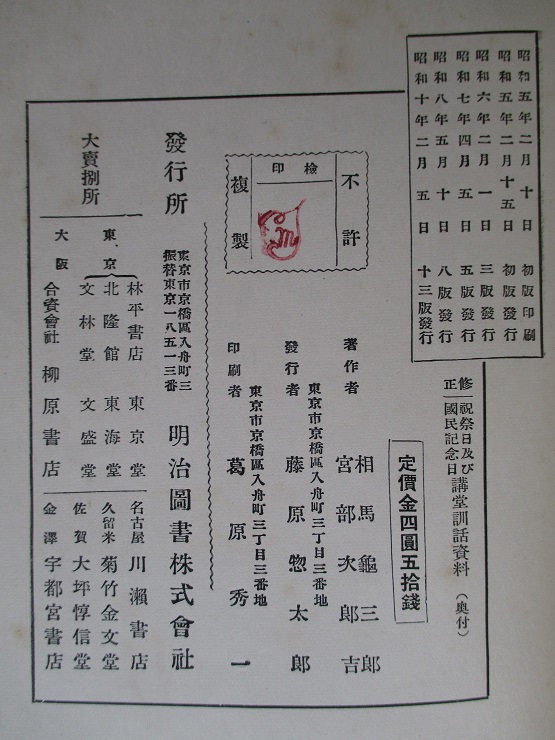 昭和五年二月十日 初版印刷
昭和五年二月十五日 初版發行
昭和六年二月一日 三版發行
昭和七年四月五日 五版發行
昭和八年五月十日 八版發行
昭和十年二月五日 十三版發行
修正 祝祭日及び國民記念日 講堂訓話資料 (奥付)
定價金四圓五拾錢
著作者 相馬龜三郎
宮部次郎吉
東京市京橋區入舟町三丁目三番地
發行者 藤原惣太郎
東京市京橋區入舟町三丁目三番地
印刷者 葛原秀一
不許
檢印
複製
發行所
東京市京橋區入舟町三
振替東京一八五一三番
明治圖書株式會社
大賣捌所
東京
林平書店 東京堂
北隆館 東海堂
文林堂 文盛堂
大阪 合資會社 柳原書店
名古屋 川瀬書店
久留米 菊竹金文堂
佐賀 大坪惇信堂
金澤 宇都宮書店